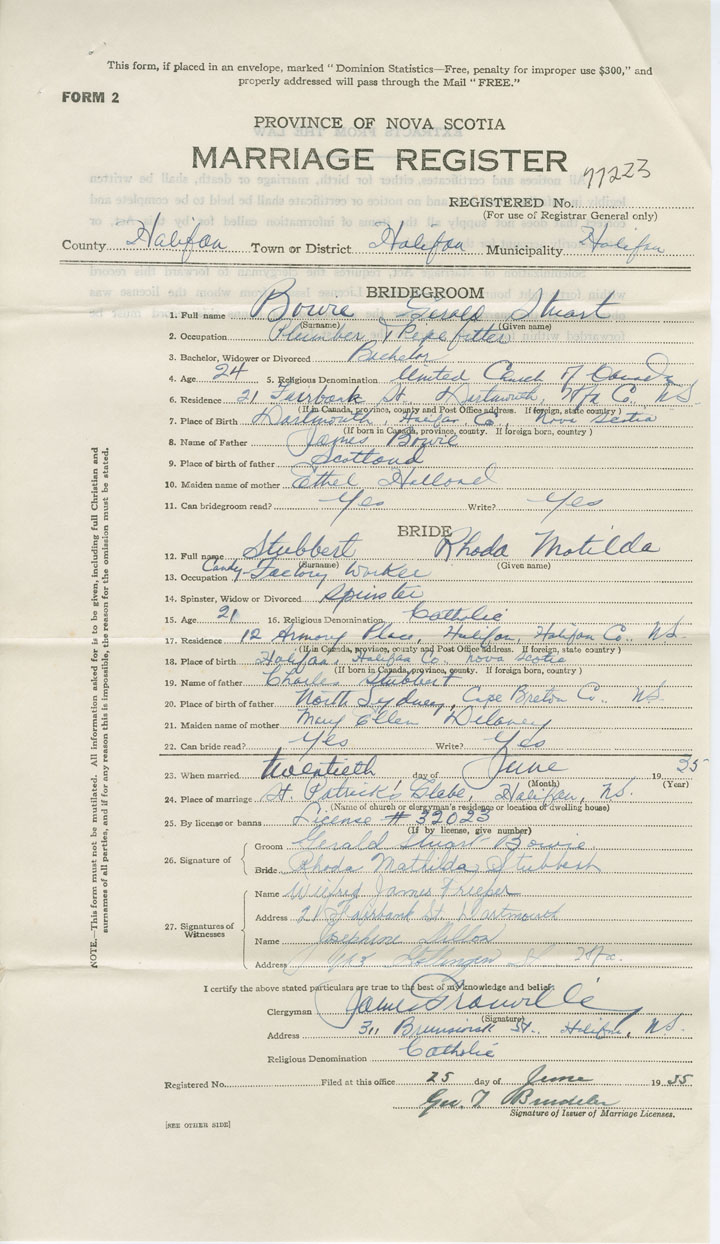 This form, if placed in an envelope, marked "Dominion Statistics—Free, penalty for improper use $300," and
properly addressed will pass through the Mail "FREE."
FORM 2
PROVINCE OF NOVA SCOTIA
MARRIAGE REGISTER 77223
REGISTERED No.
(For use of Registrar General only)
County Halifax Town or District Halifax Municipality Halifax
BRIDEGROOM
1. Full name Bowie Gerald Stuart
(Surname) (Given name)
2. Occupation Plumber & Pipefitter
3. Bachelor, Widower or Divorced Bachelor
4. Age 24 5. Religious Denomination United Church of Canada
6. Residence 21 Fairbank St. Dartmouth, Hfx Co., N.S.
(If in Canada, province, county and Post Office address. If foreign, state country)
7. Place of Birth Dartmouth, Halifax Co., Nova Scotia
(If born in Canada, province, county. If foreign born, country)
8. Name of Father James Bowie
9. Place of birth of father Scotland
10. Maiden name of mother Ethel Holland
11. Can bridegroom read? Yes Write? Yes
BRIDE
12. Full name Stubbert Rhoda Matilda
(Surname) (Given name)
13. Occupation Candy Factory Worker
14. Spinster, Widow or Divorced Spinster
15. Age 21 16. Religious Denomination Catholic
17. Residence 12 Armory Place, Halifax, Halifax Co., N.S.
(If in Canada, province, county and Post Office address. If foreign, state country)
18. Place of birth Halifax, Halifax Co. Nova Scotia
(If born in Canada, province, county. If foreign born, country)
19. Name of father Charles Stubbert
20. Place of birth of father North Sydney, Cape Breton Co., N.S.
21. Maiden name of mother Mary Ellen Delaney
22. Can bride read? Yes Write? Yes
23. When married twentieth day of June 19 55
(Month) (Year)
24. Place of marriage St. Patrick's Glebe, Halifax, N.S.
(Name of church or clergyman's residence or location of dwelling house)
25. By license or banns License # 32023
(If by license, give number)
26. Signature of Groom Gerald Stuart Bowie
Bride Rhoda Mathilda Stubbert
27. Signatures of Witnesses
Name Wilfred James
Address 21 Fairbank St. Dartmouth
Name Josephine
Address St Hfx.
I certify the above stated particulars are true to the best of my knowledge and belief.
Clergyman James Granville
(Signature)
Address 311 Brunswick St., Halifax, N.S.
Religious Denomination Catholic
Registered No. Filed at this office 25 day of June 19 55
Geo. T.
Signature of Issuer of Marriage Licenses.
[SEE OTHER SIDE]
NOTE.—This form must not be mutilated. All information asked for is to be given, including full Christian and
surnames of all parties, and if for any reason this is impossible, the reason for the omission must be stated.